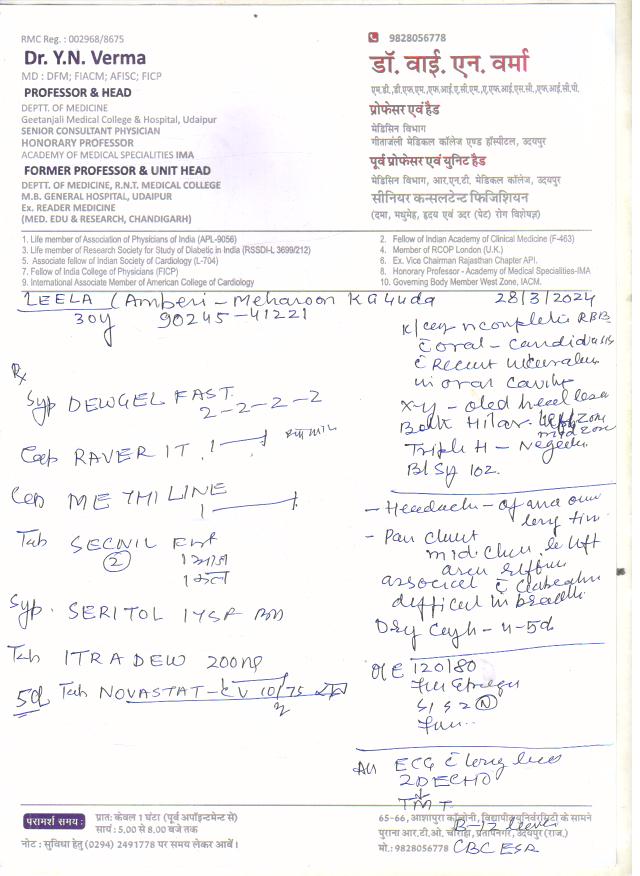 RMC Reg. : 002968/8675
Dr. Y.N. Verma
MD : DFM; FIACM; AFISC; FICP
PROFESSOR & HEAD
DEPTT. OF MEDICINE
Geetanjali Medical College & Hospital, Udaipur
SENIOR CONSULTANT PHYSICIAN
HONORARY PROFESSOR
ACADEMY OF MEDICAL SPECIALITIES IMA
FORMER PROFESSOR & UNIT HEAD
DEPTT. OF MEDICINE, R.N.T. MEDICAL COLLEGE
M.B. GENERAL HOSPITAL, UDAIPUR
Ex. READER MEDICINE
(MED. EDU & RESEARCH, CHANDIGARH)
9828056778
डॉ. वाई. एन. वर्मा
एम.डी.,डी.एफ.एम.,एफ.आई.ए.सी.एम.,ए.एफ.आई.एस.सी.,एफ.आई.सी.पी.
प्रोफेसर एवं हैड
मेडिसिन विभाग
गीतांजली मेडिकल कॉलेज एण्ड हॉस्पीटल, उदयपुर
पूर्व प्रोफेसर एवं युनिट हैड
मेडिसिन विभाग, आर.एन.टी. मेडिकल कॉलेज, उदयपुर
सीनियर कन्सलटेन्ट फिजिशियन
(दमा, मधुमेह, हृदय एवं उदर (पेट) रोग विशेषज्ञ)
1. Life member of Association of Physicians of India (APL-9056)
3. Life member of Research Society for Study of Diabetic in India (RSSDI-L 3699/212)
5. Associate fellow of Indian Society of Cardiology (L-704)
7. Fellow of India College of Physicians (FICP)
9. International Associate Member of American College of Cardiology
2. Fellow of Indian Academy of Clinical Medicine (F-463)
4. Member of RCOP London (U.K.)
6. Ex. Vice Chairman Rajasthan Chapter API.
8. Honorary Professor - Academy of Medical Specialities-IMA
10. Governing Body Member West Zone, IACM.
LEELA (Amberi - Meharoon 28/3/2024
30y 90245-41221
Rx
Syp DEWGEL FAST
2-2-2-2
Cap RAVER IT 1
Cap ME THILINE
1
Tab SECNIL
2
1 आज
1 कल
Syp. SERITOL 1 YSP BD
Tab ITRA DEW 200
5d Tab NOVASTAT-CV 10/75
oral - candidiasis
in oral cavity
X-ray - old heal
Hilar zone
mid zone
Triple H - Negative
Bl Sy 102.
- Headache - long
- Pain chest
mid chest left
difficult in
Dry Cough - 4-5d
O/E 120/80
S1 S2 N
Adv ECG long lead
2D ECHO
TMT
B-12 level
CBC ESR
परामर्श समय :
प्रात: केवल 1 घंटा (पूर्व अपॉइन्टमेन्ट से)
सायं : 5.00 से 8.00 बजे तक
नोट : सुविधा हेतु (0294) 2491778 पर समय लेकर आवें।
65-66, आशापुरा कॉलोनी, विद्यापीठ युनिर्वसिटी के सामने
पुराना आर.टी.ओ. चौराहा, प्रतापनगर, उदयपुर (राज.)
मो.: 9828056778